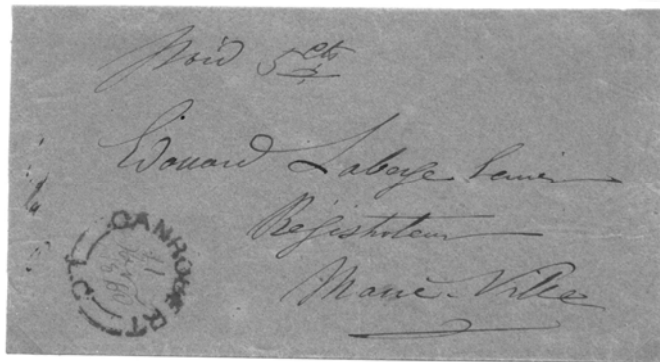 Paid 5 cts
Edouard Laberge Ecuier
Régistrateur
Marie-Ville
CANROBERT
L.C.